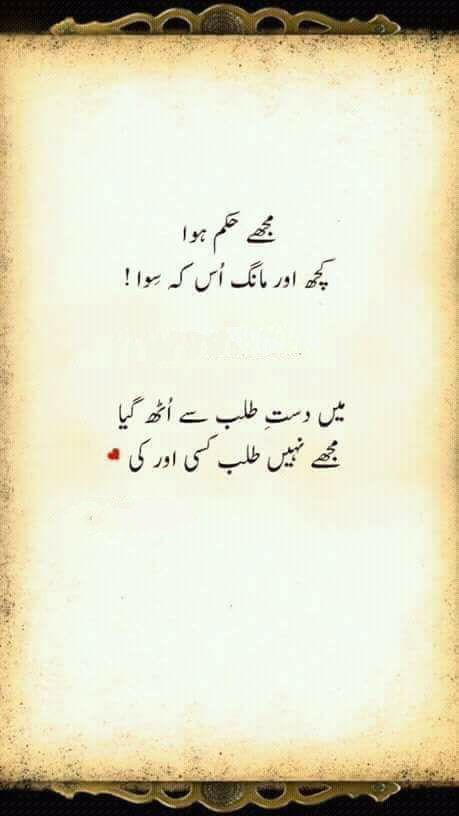 مجھے حکم ہوا
کچھ اور مانگ اُس کہ سِوا !
میں دستِ طلب سے اُٹھ گیا
مجھے نہیں طلب کسی اور کی